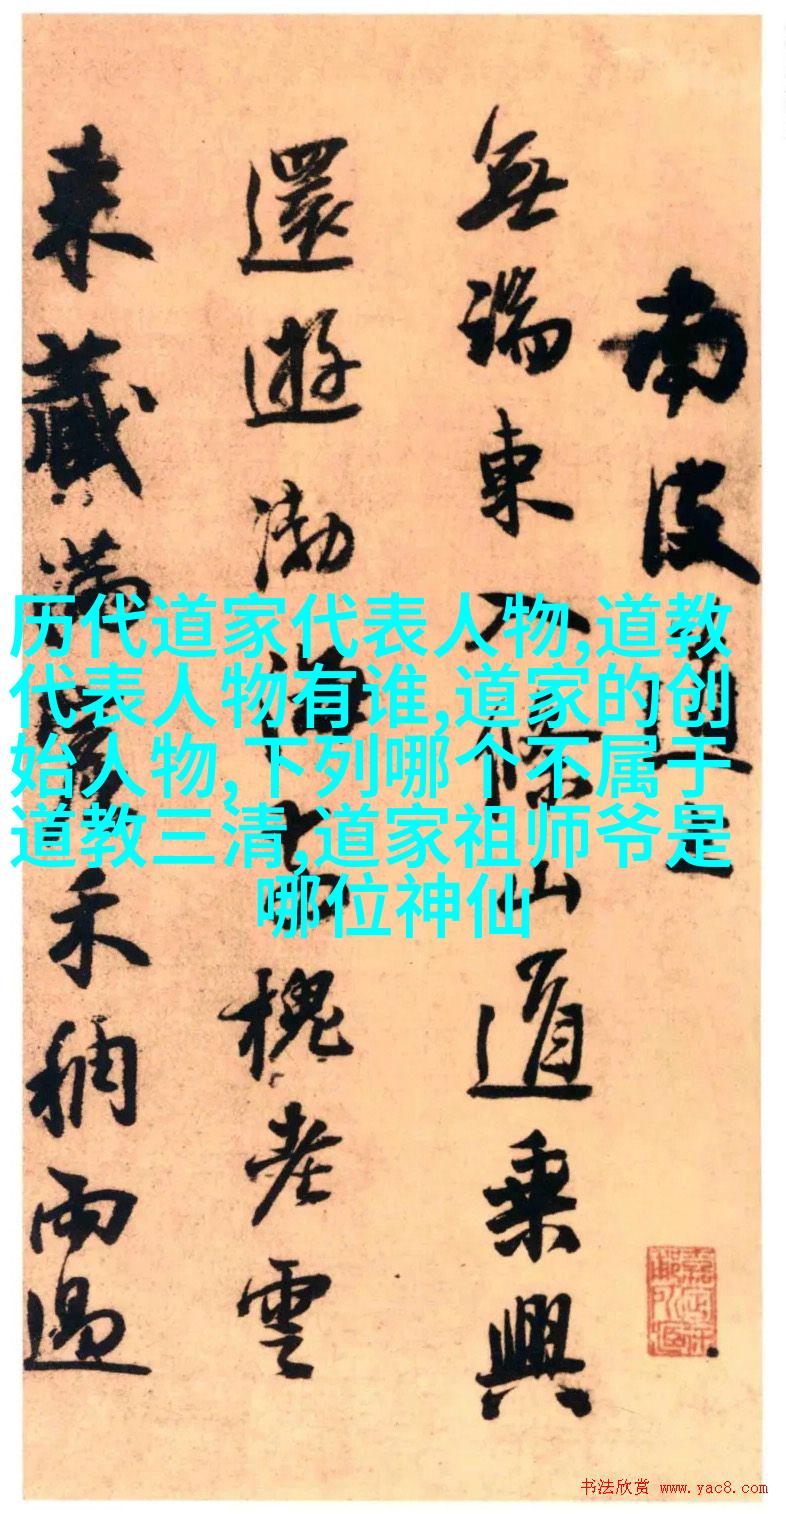 南皮道上
無端東入條山道乘興
還遊渤海槐老雲
来藏滿禾稠雨過
历代道家代表人物,道教
代表人物有谁,道家的创
始人物,下列哪个不属于
道教三清,道家祖师爷是
哪位神仙
书法欣赏 www.yac8.com